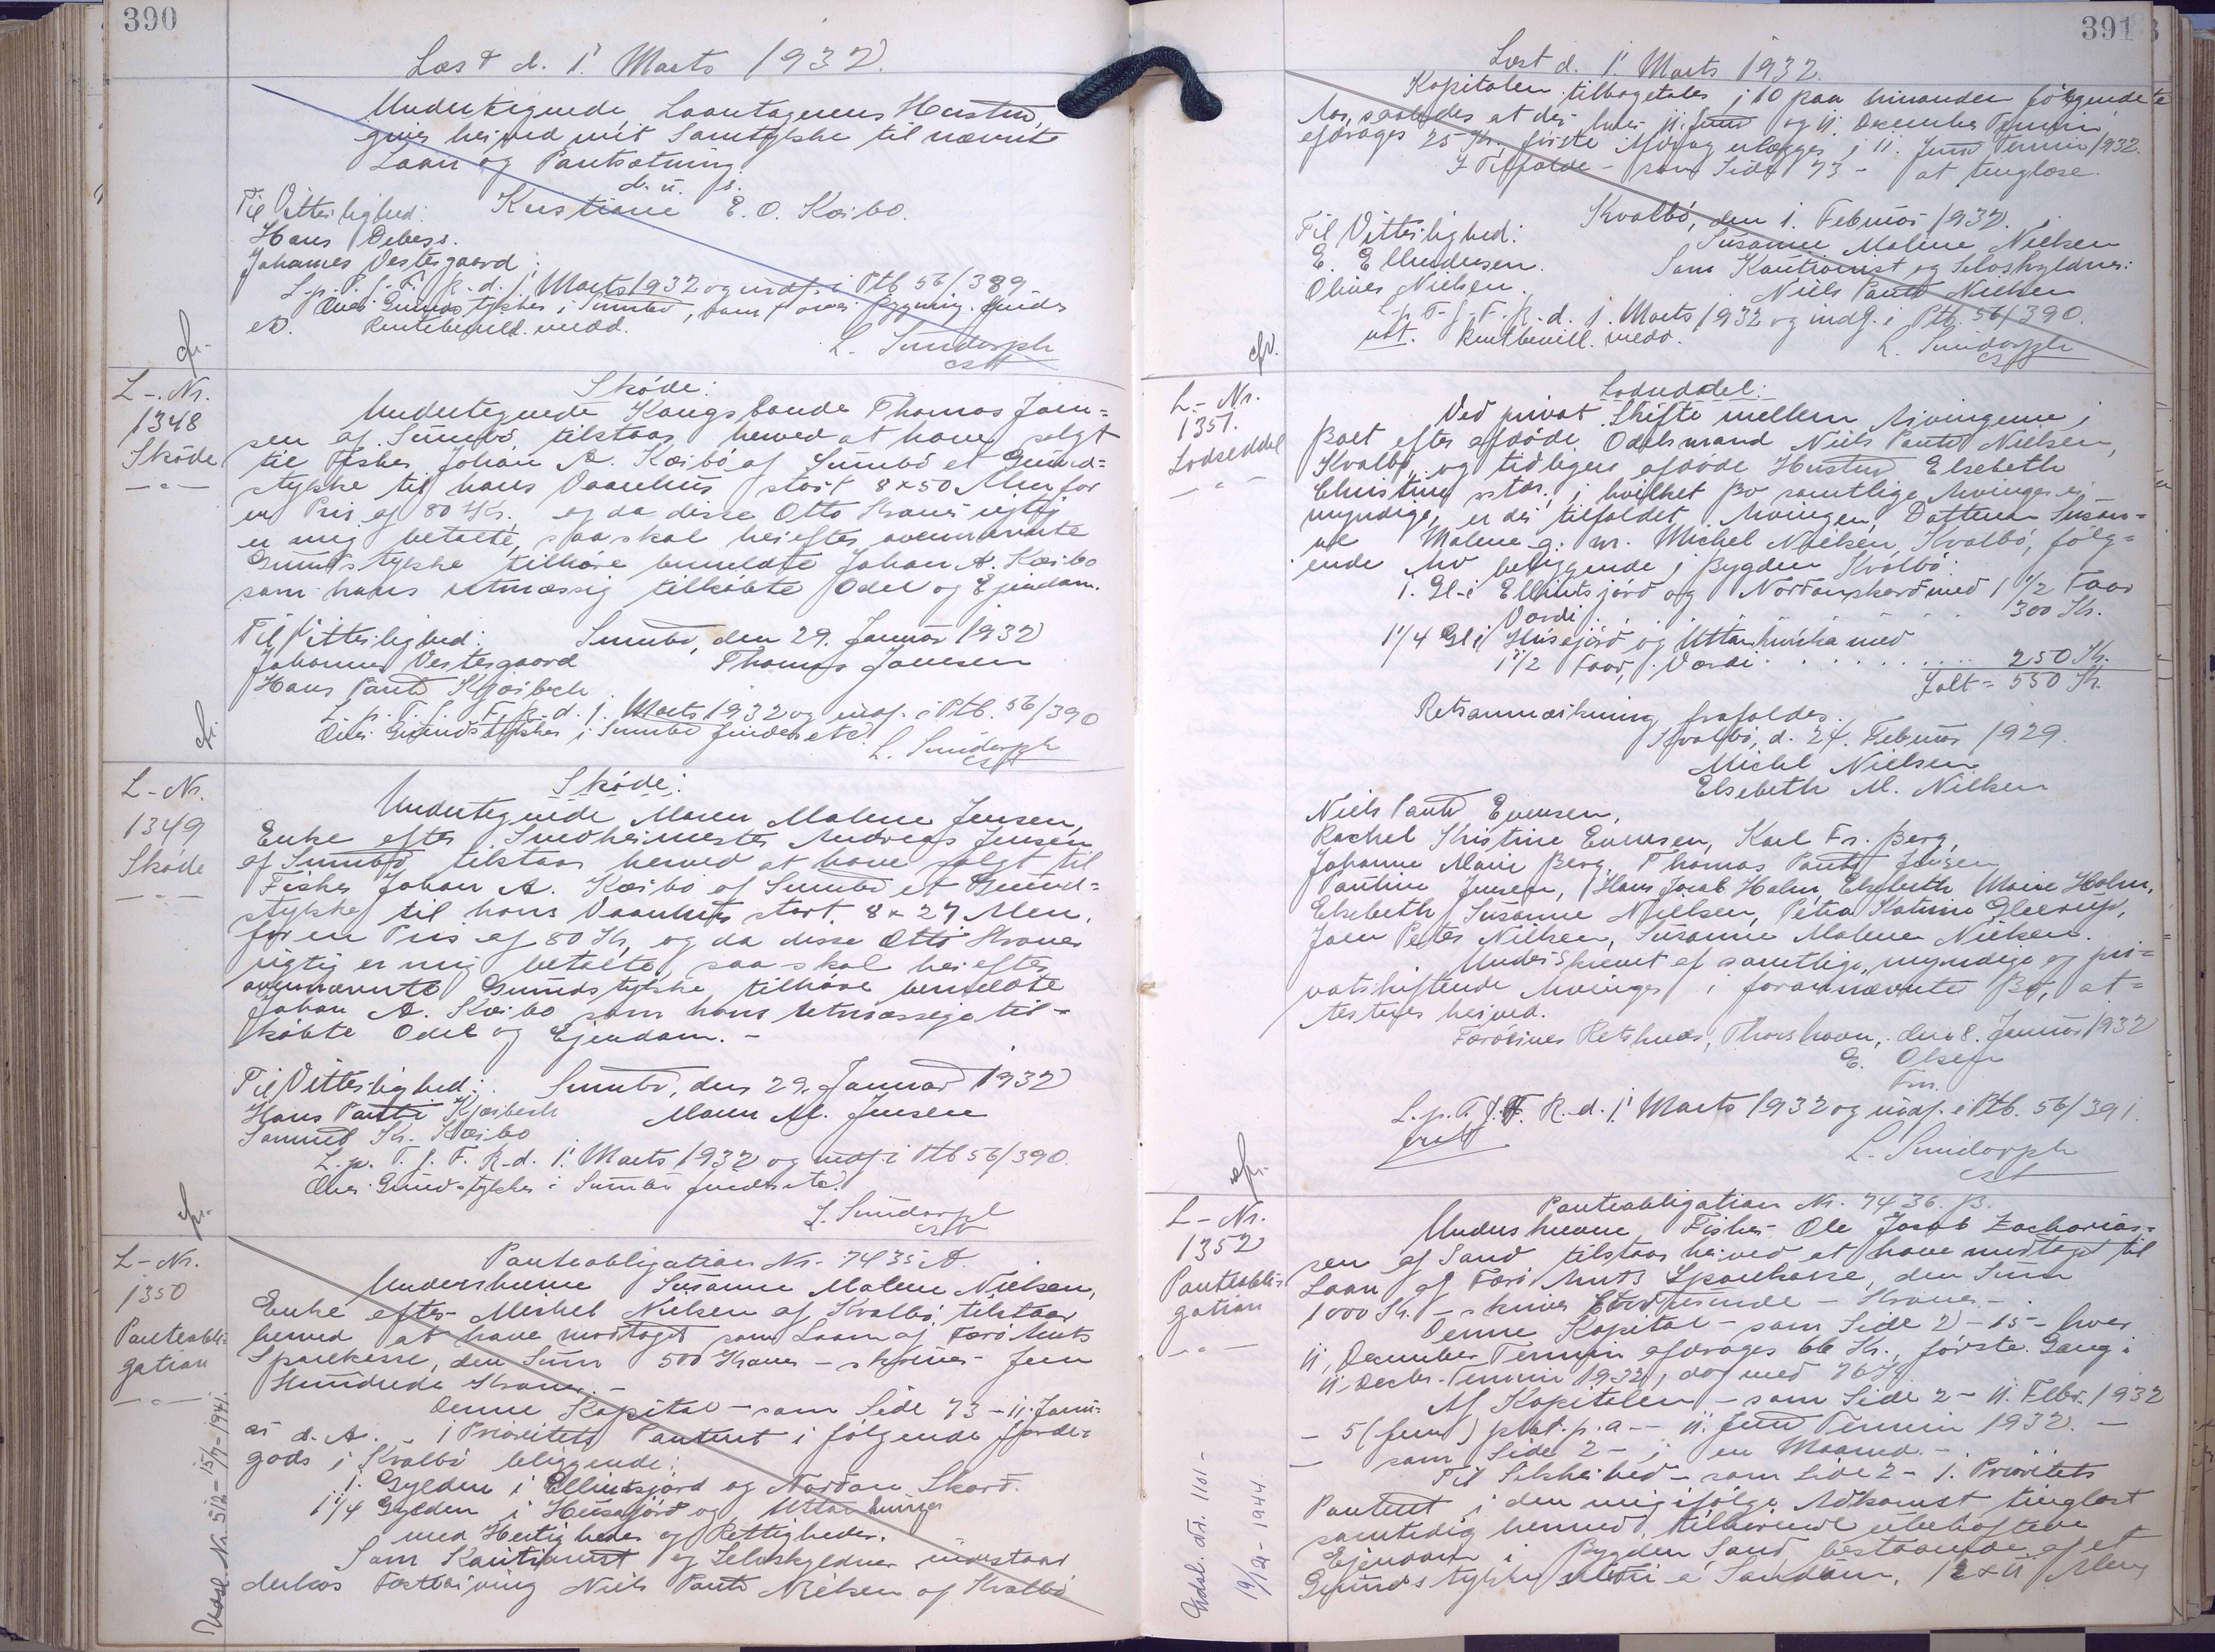 390
Læst d. 1' Marts 1932.
Undertegnede Laantagerens Hustru,
giver herved mit Samtykke til nævnte
Laan og Pantsætning
d. u. s.
Til Vitterlighed: Kristiane E. O. Kæibo.
Hans Debess.
Johannes Vestergaard
L. p. T. f. F. R. d. 1' Marts 1932 og indf. i Ptb 56/389
Over Grundstykker i Sumbø, som over Bygning. findes
ei Rentebevill. medd.
L. Sundorph
cfr.
L-. Nr.
1348
Skøde
Skøde:
Undertegnede Kongsbonde Thomas Joen=
sen af Sumbø tilstaar herved at have solgt
til Fisker Johan A. Kæibo af Sumbø et Grund=
stykke til hans Vaanhus stort 8x50 Alen for
en Pris af 80 Kr. og da disse Otti Kroner rigtig
er mig betalte, saa skal herefter ovennævnte
Grundstykke tilhøre bemeldte Johan A. Kæibo
som hans retmæssig tilkøbte Odel og Ejendom.
Til Vitterlighed: Sumbø, den 29. Januar 1932
Johannes Vestergaard Thomas Joensen
Hans Pauli Kjærbech
L. p. T. f. F. R. d. 1. Marts 1932 og indf. i Ptb. 56/390
Over Grundstykker i Sumbø findes etc.
L. Sundorph
cfr.
L-Nr.
1349
Skøde
Skøde:
Undertegnede Maren Malene Jensen,
Enke efter Snedkermester Andreas Jensen
af Sumbø tilstaar herved at have solgt til
Fisker Johan A. Kæibo af Sumbø et Grund=
stykke til hans Vaanhus stort 8x27 Alen.
for en Pris af 80 Kr, og da disse Otti Kroner
rigtig er mig betalte, saa skal herefter
ovennævnte Grundstykke tilhøre bemeldte
Johan A. Kæibo som hans retmæssige til=
købte Odel og Ejendom. -
Til Vitterlighed: Sumbø, den 29. Januar 1932
Hans Pauli Kjærbech Maren M. Jensen
Samuel Kr. Kæibo
L. p. T. f. F. R. d. 1' Marts 1932 og indf. i Ptb 56/390.
Over Grundstykker i Sumbø findes etc.
L. Sundorph
cfr.
L-Nr.
1350
Panteobli=
gation
Udsl. Nr. 512 - 15/7 - 1941.
Panteobligation Nr. 7435 A.
Underskrevne Susanne Malene Nielsen,
Enke efter Michel Nielsen af Kvalbø, tilstaar
herved at have modtaget som Laan af Færø Amts
Sparekasse, den Sum 500 Kroner - skriver Fem
Hundrede Kroner. -
Denne Kapital - som Side 73 - 11. Janu=
ar d. A. - 1 Prioritets Panteret i følgende Jorde=
gods i Kvalbø beliggende:
1. Gylden i Ellintsjørd og Nordan Skard.
1 1/4 Gylden i Húsajørd og Uttan
med Herligheder og Rettigheder.
Som Kautionist og Selvskyldner indestaar
derhos Fostersøning Niels Pauli Nielsen af Kvalbø
391
Læst d. 1' Marts 1932.
Kapitalen tilbagetales i 10 paa hinanden følgende
Aar, saaledes at der hver 11. Juni og 11. December Termin
afdrages 25 Kr., første Afdrag erlægges i 11. Juni Termin 1932.
I Tilfælde - som Side 73 - at tinglæse.
Kvalbø, den 1. Februar 1932.
Til Vitterlighed: Susanne Malene Nielsen
E. Ellendersen. Som Kautionist og Selvskyldner:
Oliver Nielsen. Niels Pauli Nielsen
L. p. T. f. F. R. d. 1. Marts 1932 og indf. i Ptb. 56/390.
Rentbevill. medd.
L. Sundorph
cfr.
L.- Nr.
1351.
Lodseddel
Lodseddel:
Ved privat Skifte mellem Arvingerne i
Boet efter afdøde Odelsmand Niels Pauli Nielsen,
Kvalbø, og tidligere afdøde Hustru Elsebeth
Christine sstds., i hvilket Bo samtlige Arvinger er
myndige, er der tilfaldet Arvingen, Datteren Susan=
ne Malene g. m. Michel Nielsen, Kvalbø, følg=
ende Arv beliggende i Bygden Kvalbø:
1. Gl. i Ellintsjørd og Nordanskard med 1 1/2 Faar
Værdi . . . . . . 300 Kr.
1 1/4 Gl i Húsajørd og Uttan med
1 1/2 Faar, Værdi . . . . . . 250 Kr.
Ialt = 550 Kr.
Retsanmærkning frafaldes.
Kvalbø, d. 24. Februar 1929.
Michel Nielsen
Elsebeth M. Nielsen
Niels Pauli Evensen,
Rachel Kristine Evensen, Karl Fr. Berg,
Johanne Marie Berg, Thomas Pauli Jensen
Pauline Jensen, Hans Jacob Holm, Elsebeth Marie Holm,
Elsebeth Susanne Nielsen, Petra Katrine Gleerup,
Joen Peter Nielsen, Susanne Malene Nielsen.
Underskrevet af samtlige, myndige og pri=
vatskiftende Arvinger i forannævnte Bo, at=
testeres herved.
Færøernes Retskreds, Thorshavn, den 8. Januar 1932
E. Olsen
Fm.
L. p. T. f. F. R. d. 1' Marts 1932 og indf. i Ptb. 56/391.
L. Sundorph
cfr.
L-Nr.
1352
Panteobli=
gation
Udsl. Nr. 1101 - 19/12 - 1944.
Panteobligation Nr. 7436. B.
Underskrevne Fisker Ole Jacob Zacharias=
sen af Sand tilstaar herved at have modtaget til
Laan af Færø Amts Sparekasse, den Sum
1000 Kr. - skriver Et Tusinde - Kroner. -
Denne Kapital - som Side 2 - 15 - hver
11. December Termin afdrages 66 Kr., første Gang i
11. Decbr. Termin 1932, dog med 76 Kr.
Af Kapitalen - som Side 2 - 11. Febr. 1932
- 5 (fem) pCt. p. a - 11. Juni Termin 1932. -
- som Side 2 - i en Maaned. -
Til Sikkerhed - som Side 2 - 1. Prioritets
Panteret i den mig ifølge Adkomst tinglæst
samtidig hermed tilhørende ubehæftede
Ejendom i Bygden Sand, bestaaende af et
Grundstykke á Sandum, 12 x 11 Alen